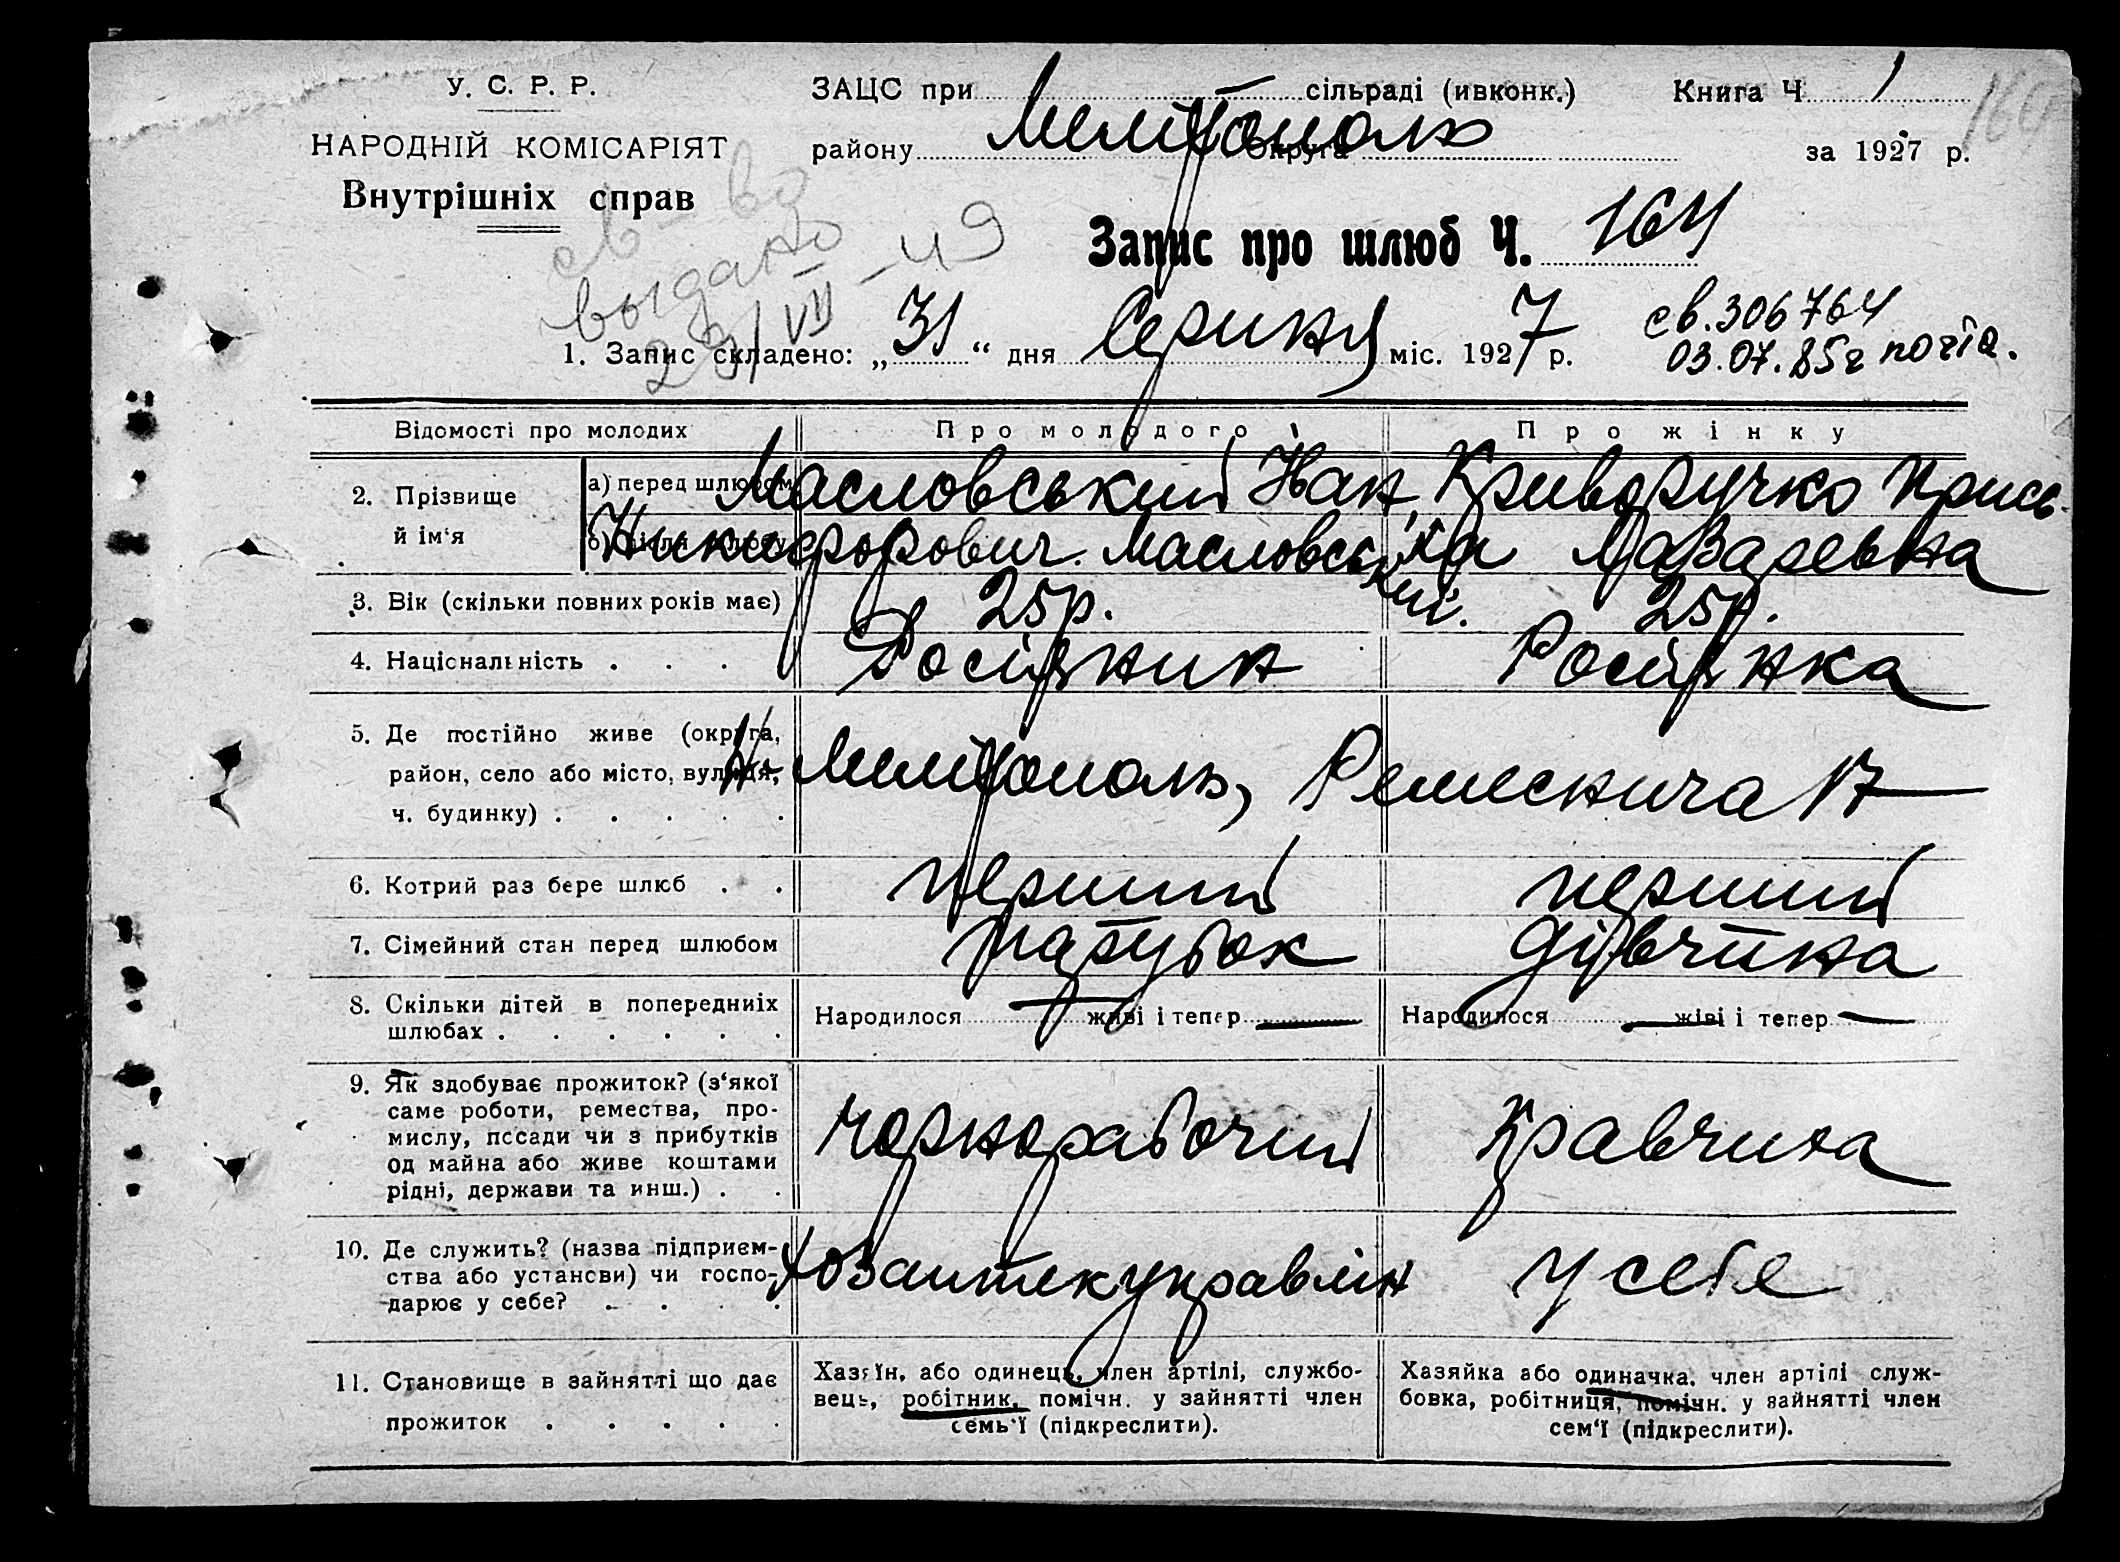 У. С. Р. Р.
НАРОДНІЙ КОМІСАРІЯТ
Внутрішніх справ
ЗАЦС при сільраді (ивконк.) Книга Ч 1
160
району Мелітополь Округа за 1927 р.
св-во
выдано
29/VII-49
Запис про шлюб Ч. 164
1. Запис складено: „31“ дня Серпня міс. 1927 р.
св. 306764
03.07.85г почта.
Відомості про молодих
Про молодого
Про жінку
2. Прізвище й ім'я
а) перед шлюбом
Масловський Іван Криворучко Прись.
Никифорович. Масловська Лазаревна
кий.
3. Вік (скільки повних років має) 25р. 25р.
4. Національність . . . Росіянин Росіянка
5. Де постійно живе (округа,
район, село або місто, вулиця,
ч. будинку) . . . . .
Н-Мелітополь, 17
6. Котрий раз бере шлюб . . перший перший
7. Сімейний стан перед шлюбом парубок дівчина
8. Скільки дітей в попередніх
шлюбах . . . . . .
Народилося — живі і тепер —
Народилося — жіві і тепер —
9. Як здобуває прожиток? (з'якої
саме роботи, ремества, про-
мислу, пссади чи з прибутків
од майна або живе коштами
рідні, держави та инш.) . .
Чорнорабочий Кравчиха
10. Де служить? (назва підприєм-
ства або устансви) чи госпо-
дарює у себе? . . . .
у себе
11. Становище в зайнятті що дає
прожиток . . . . .
Хазяїн, або одинець, член артілі, службо-
вець, робітник, помічн. у зайнятті член
семь'ї (підкреслити).
Хазяйка або одиначка, член артілі служ-
бовка, робітниця, помічн. у зайнятті член
сем'ї (підкреслити).